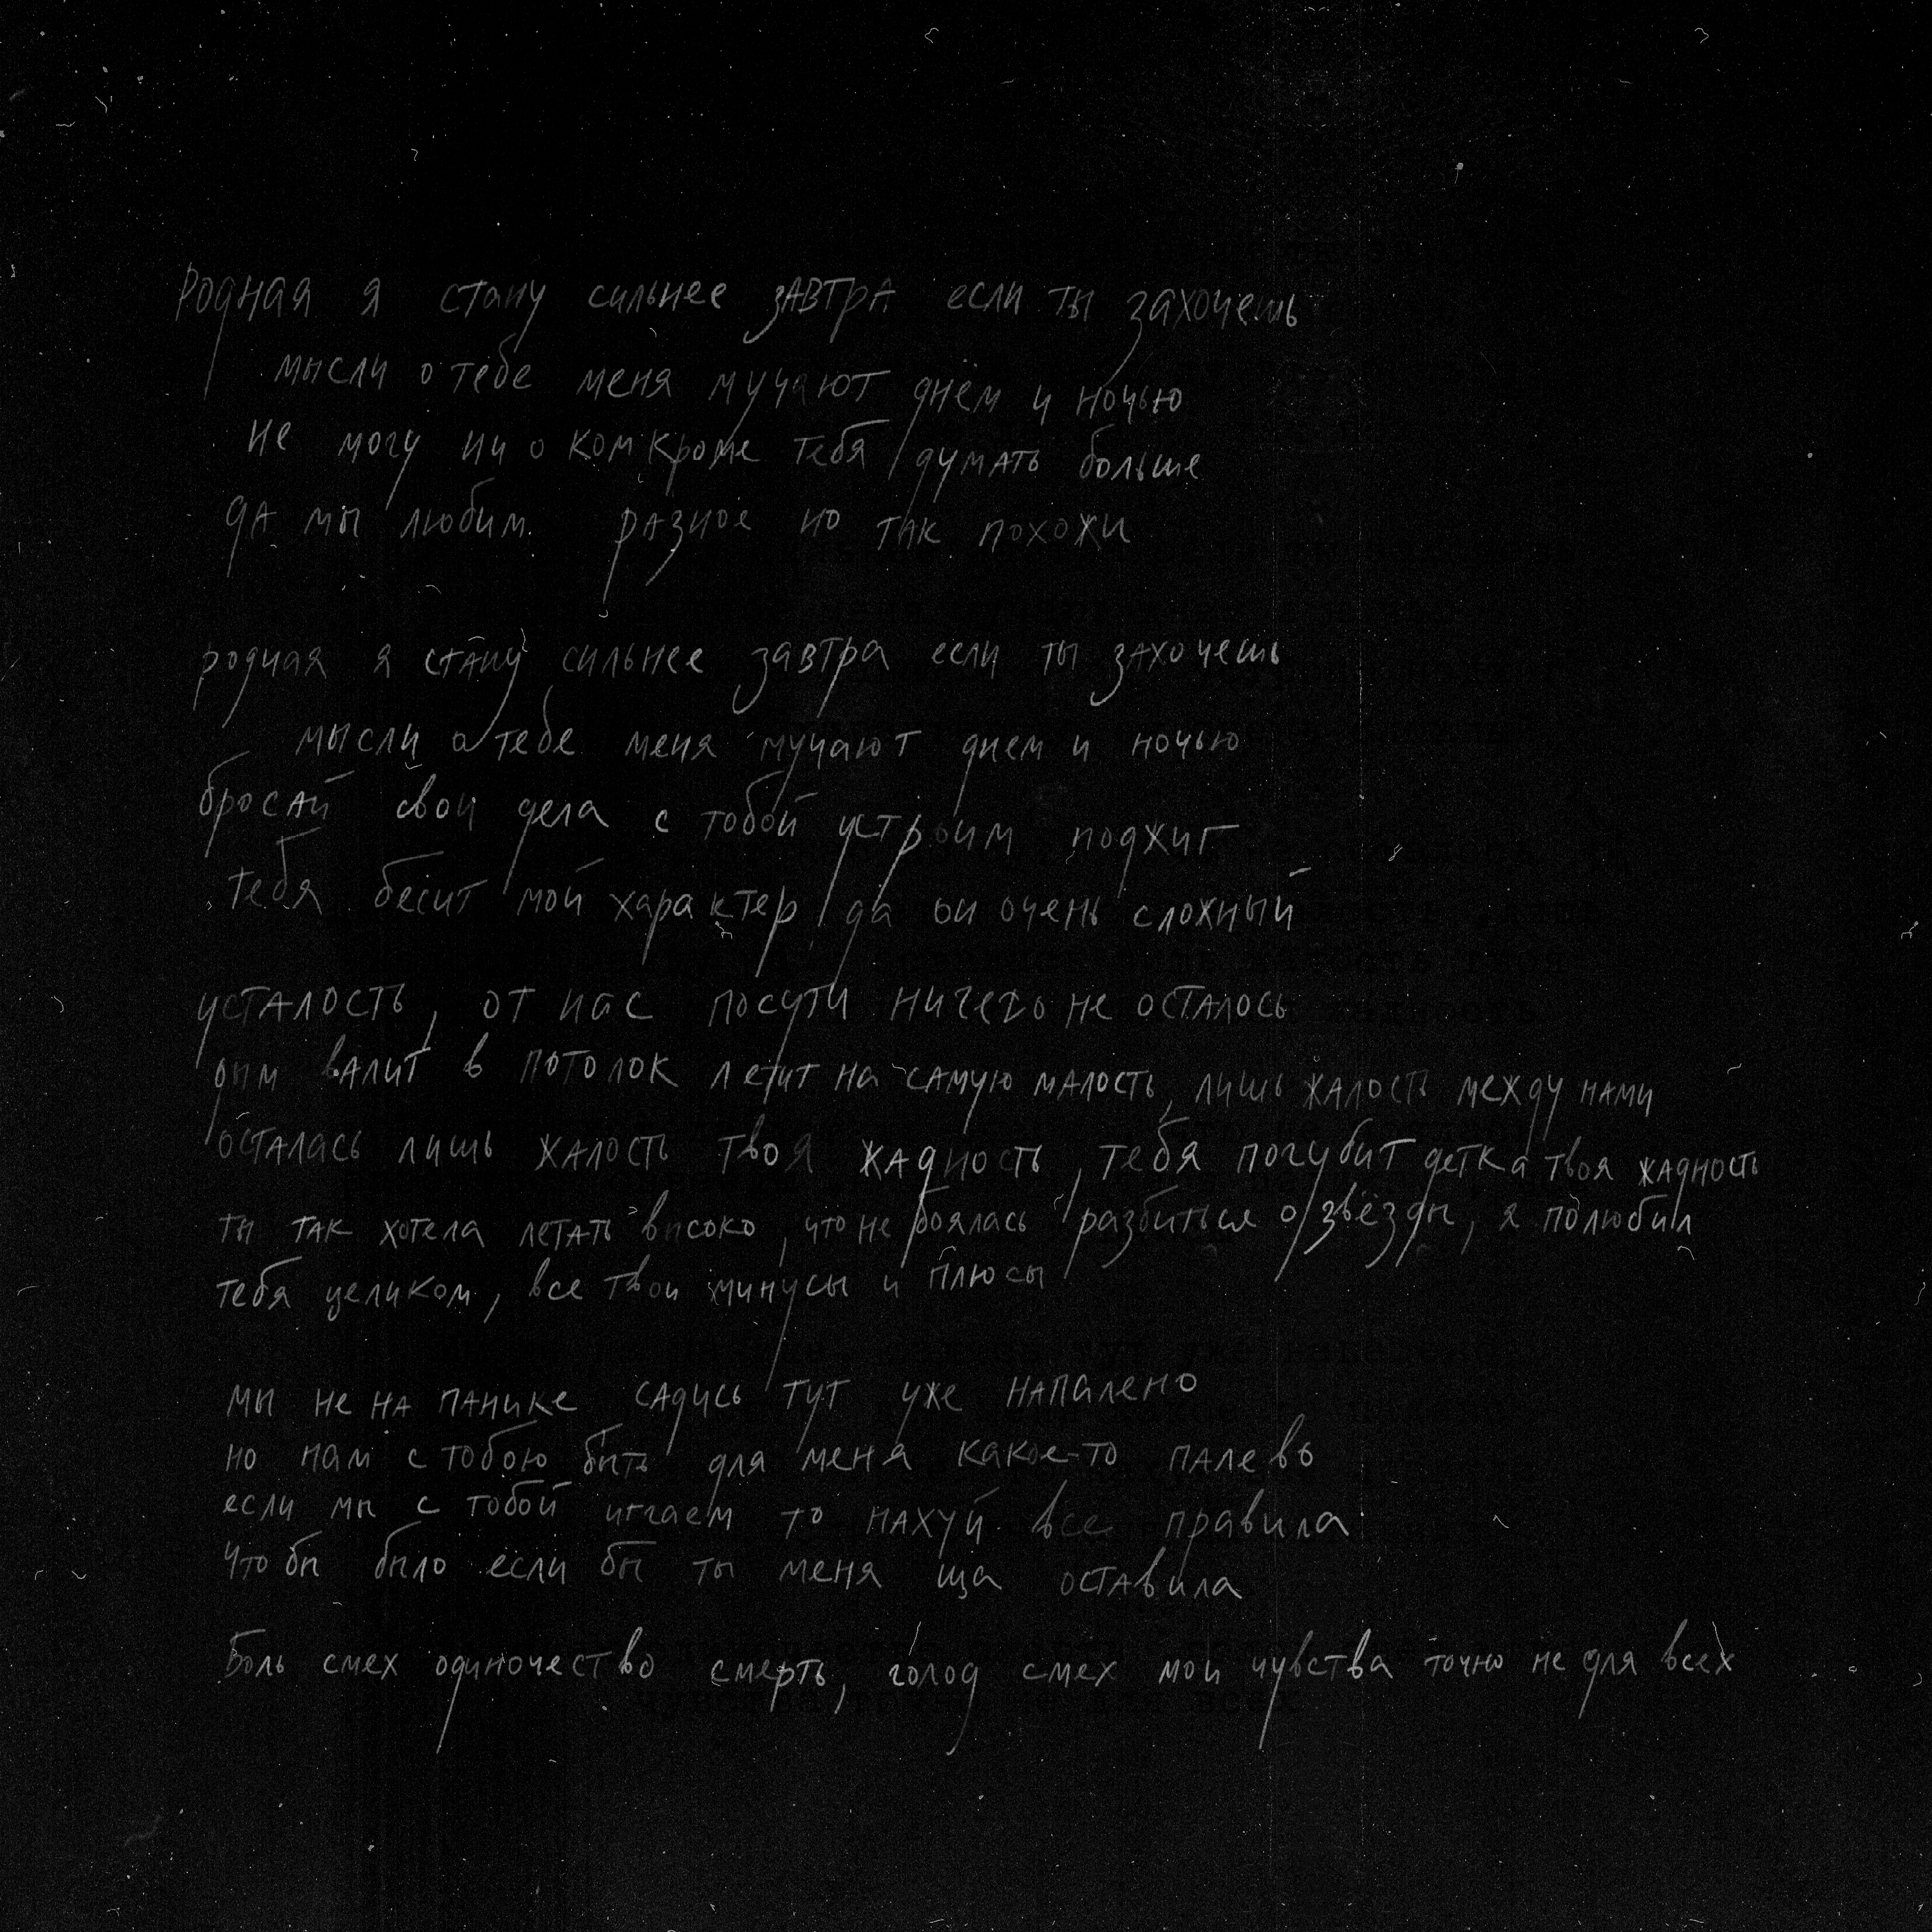 Родная я стану сильнее завтра если ты захочешь
мысли о тебе меня мучают днём и ночью
не могу ни о ком кроме тебя думать больше
да мы любим разное но так похожи
родная я стану сильнее завтра если ты захочешь
мысли о тебе меня мучают днем и ночью
бросай свои дела с тобой устроим поджиг
тебя бесит мой характер да он очень сложный
усталость, от нас посути ничего не осталось
дым валит в потолок летит на самую малость, лишь жалость между нами
осталась лишь жалость твоя жадность, тебя погубит детка твоя жадность
ты так хотела летать высоко, что не боялась разбиться о звёзды, я полюбил
тебя целиком, все твои минусы и плюсы
мы не на панике садись тут уже напалено
но нам с тобою быть для меня какое-то палево
если мы с тобой играем то нахуй все правила
что бы было если бы ты меня ща оставила
Боль смех одиночество смерть, голод смех мои чувства точно не для всех